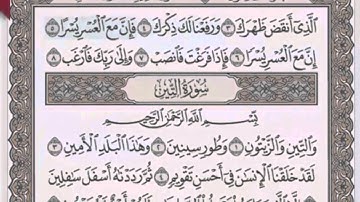 ٱلَّذِىٓ أَنقَضَ ظَهْرَكَ ٣ وَرَفَعْنَا لَكَ ذِكْرَكَ ٤ فَإِنَّ مَعَ ٱلْعُسْرِ يُسْرًا ٥
إِنَّ مَعَ ٱلْعُسْرِ يُسْرًا ٦ فَإِذَا فَرَغْتَ فَٱنصَبْ ٧ وَإِلَىٰ رَبِّكَ فَٱرْغَب ٨
سُورَةُ التِّينِ
بِسْمِ ٱللَّهِ ٱلرَّحْمَٰنِ ٱلرَّحِيمِ
وَٱلتِّينِ وَٱلزَّيْتُونِ ١ وَطُورِ سِينِينَ ٢ وَهَٰذَا ٱلْبَلَدِ ٱلْأَمِينِ ٣
لَقَدْ خَلَقْنَا ٱلْإِنسَٰنَ فِىٓ أَحْسَنِ تَقْوِيمٍ ٤ ثُمَّ رَدَدْنَٰهُ أَسْفَلَ سَٰفِلِينَ